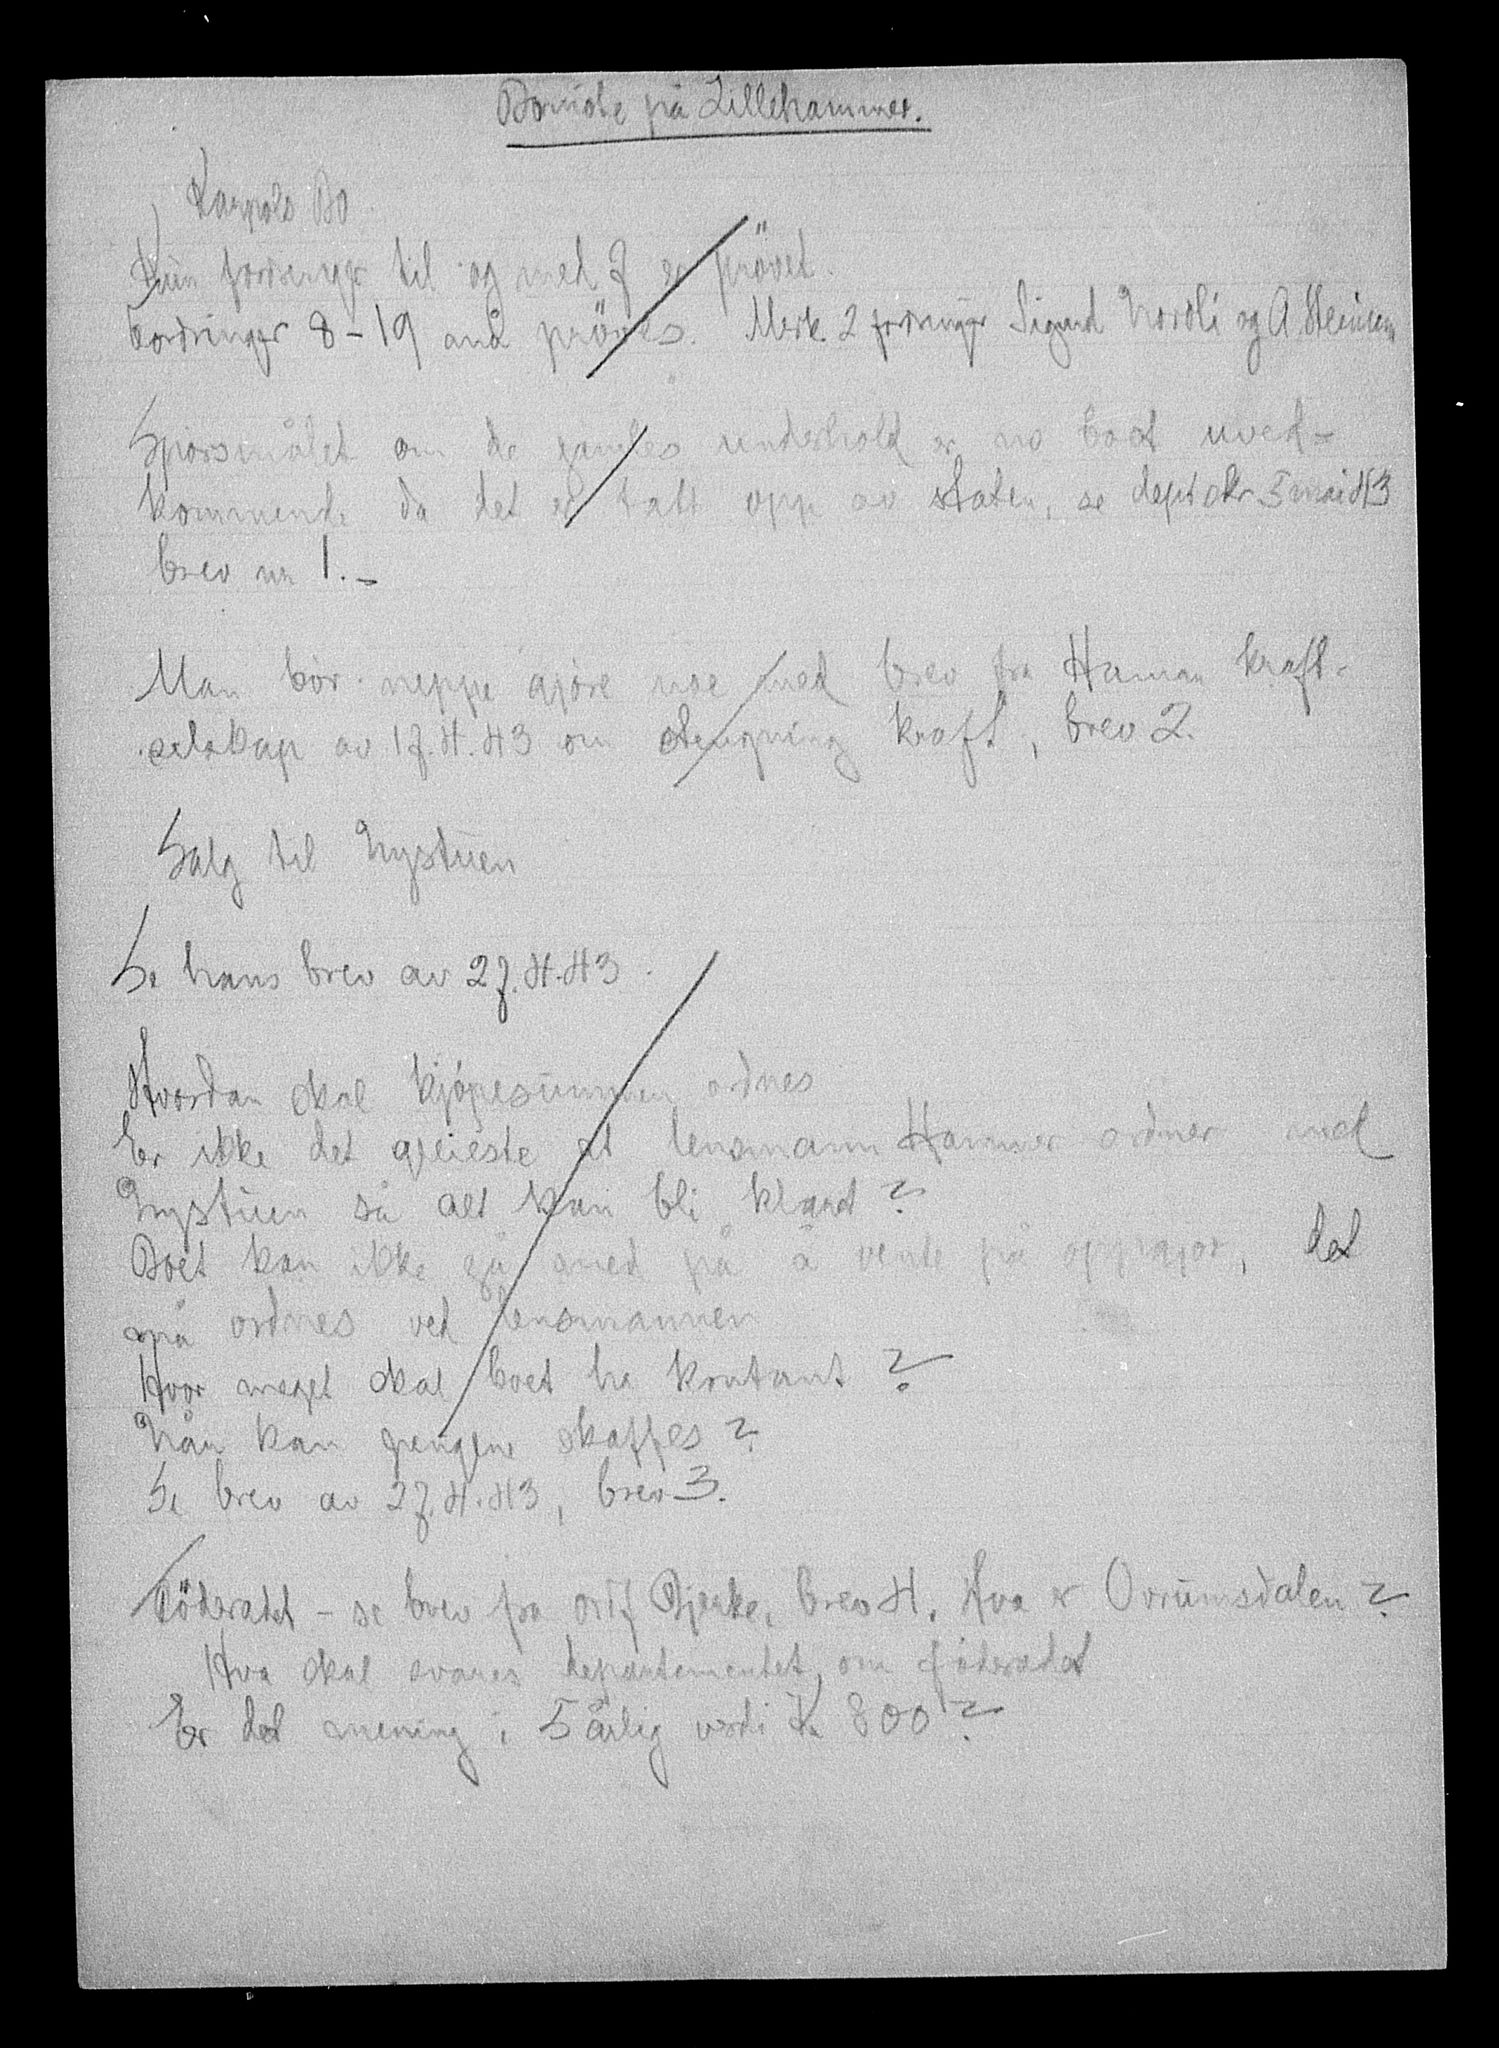 Bomöte på Lillehammer.
Karpols Bo
Kun fordringer til og med 7 er prövet.
Fordringer 8-19 må prøves. Merk 2 fordringer Sigurd Nordli og A. Steinsen
Spörsmålet om de gamles underhold er no boet uved-
kommende da det er tatt opp av staten, se dept skr 5 mai 43
brev nr 1.-
Man bör neppe gjöre noe med brev fra Hamar kraft-
selskap av 17.4.43 om stengning kraft, brev 2.
Salg til Nystuen
Se hans brev av 27.4.43.
Hvordan skal kjöpesummen ordnes
Er ikke det greieste at lensmann Hammer ordner med
Nystuen så alt kan bli klart?
Boet kan ikke gå med på å vente på oppgjör, det
må ordnes ved lensmannen
Hvor meget skal boet ha kontant?
Når kan pengene skaffes?
Se brev av 27.4.43, brev 3.
Föderådet - se brev fra ordf Bjerke, brev 4. Hva er Ovrumsdalen?
Hva skal svares departementet om föderådet
Er det mening i 5 årlig verdi Kr 800?